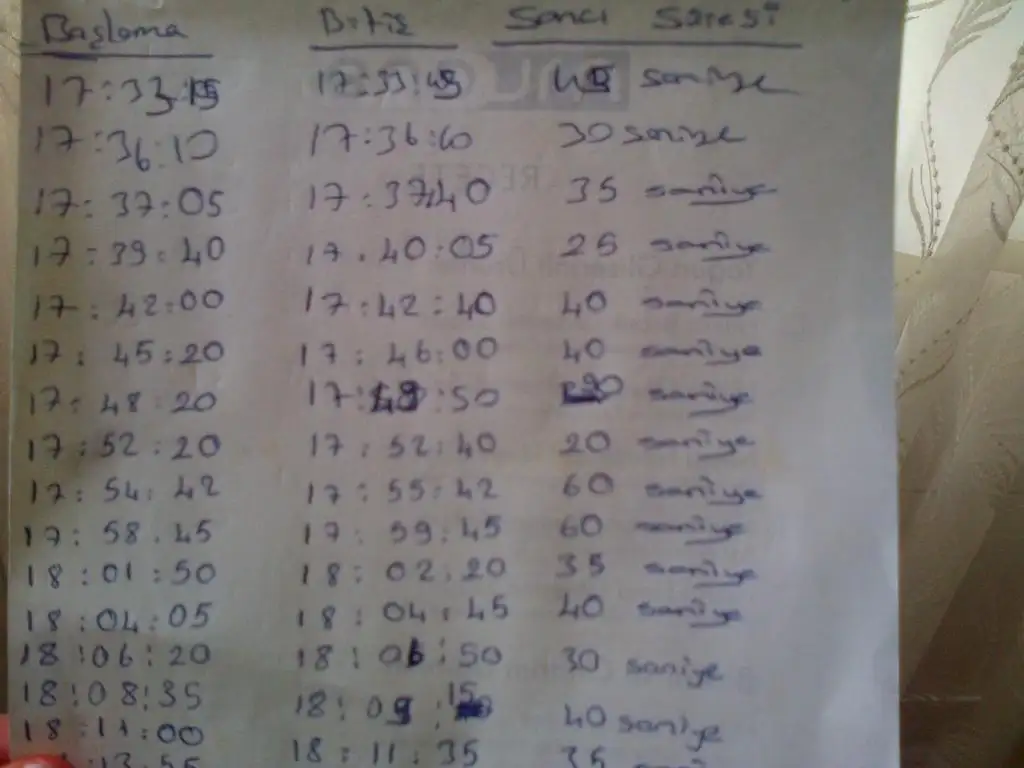 Başlama Bitiş Sancı Süresi
17:33:15 17:33:45 saniye
17:36:10 17:36:40 30 saniye
17:37:05 17:37:40 35 saniye
17:39:40 17.40:05 25 saniye
17:42:00 17:42:40 40 saniye
17:45:20 17:46:00 40 saniye
17:48:20 :50 saniye
17:52:20 17:52:40 20 saniye
17:54:42 17:55:42 60 saniye
17:58.45 17:59:45 60 saniye
18:01:50 18:02.20 35 saniye
18:04:05 18:04:45 40 saniye
18:06:20 18:06:50 30 saniye
18:08:35 18:09:15 40 saniye
18:11:00 18:11:35 35 saniye
:13:55